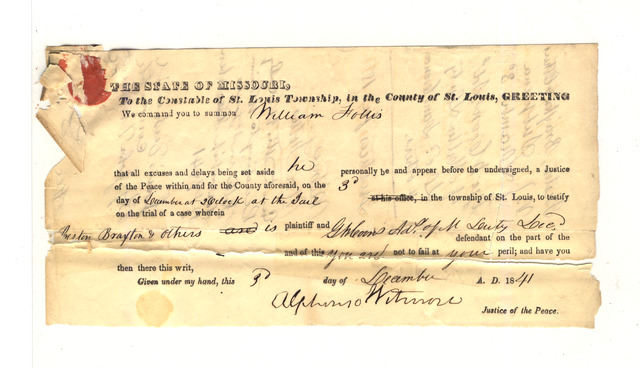 THE STATE OF MISSOURI,
To the Constable of St. Louis Township, in the County of St. Louis, GREETING
We command you to summon William Follis
that all excuses and delays being set aside he personally be and appear before the undersigned, a Justice
of the Peace within and for the County aforesaid, on the 3d
day of December at 2 Oclock at the Jail at his office, in the township of St. Louis, to testify
on the trial of a case wherein
Preston Brayton & others and is plaintiff and of M Decd
defendant on the part of the
and of this you are not to fail at your peril; and have you
then there this writ,
Given under my hand, this 3d day of December A. D. 1841
Alphonso Wetmore
Justice of the Peace.